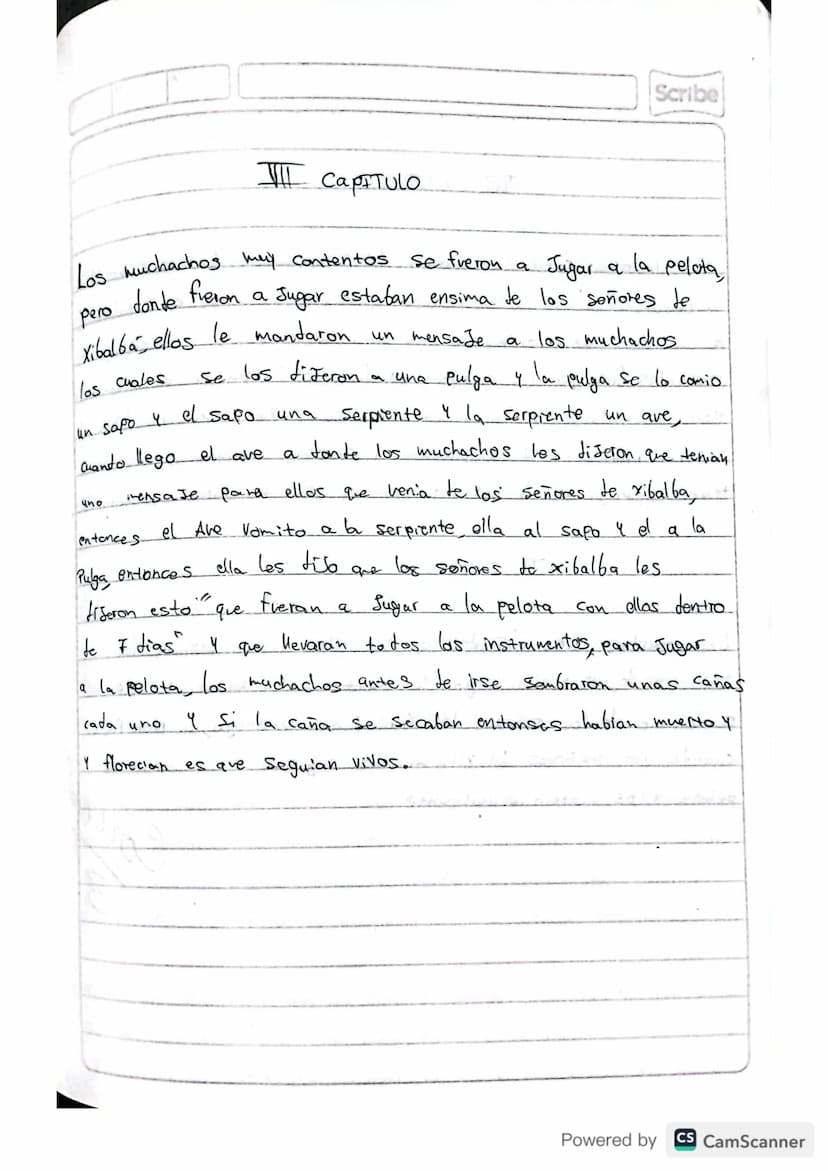 Scribe
VII CapITULO
Los muchachos muy contentos se fueron a Jugar a la pelota,
pero donde fieron a Jugar estaban ensima de los señores de
Xibalbá, ellos le mandaron un mensaJe a los muchachos
los cuales se los diJeron a una pulga y la pulga se lo comio
un sapo y el sapo una serpiente y la serpiente un ave,
cuando llego el ave a donde los muchachos les diJeron que tenian
uno mensaJe para ellos que venia de los señores de xibalba,
entonces el Ave Vomito a la serpiente, ella al sapo y el a la
Pulga, entonces ella les diJo que los señores de xibalba les
diJeron esto "que fueran a Jugar a la pelota con ellos dentro
de 7 dias" y que llevaran todos los instrumentos, para Jugar
a la pelota, los muchachos antes de irse sembraron unas cañas
cada uno y si la caña se secaban entonses habian muerto y
y florecian es que seguian vivos.
Powered by CS CamScanner